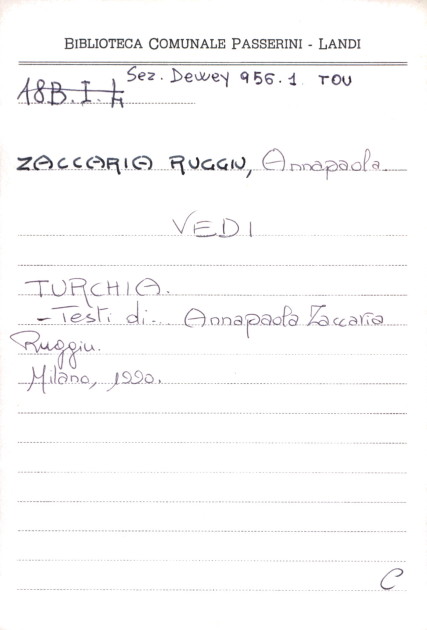 BIBLIOTECA COMUNALE PASSERINI - LANDI
18B.I.4 Sez. Dewey 956.1 TOU
ZACCARIA RUGGIU, Annapaola
VEDI
TURCHIA.
- Testi di... Annapaola Zaccaria
Ruggiu.
Milano, 1990.
C